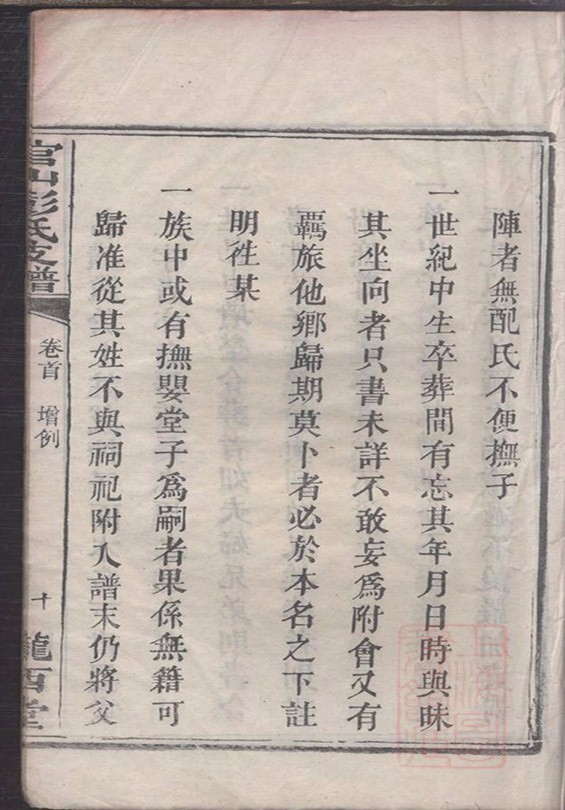 陣者無配氏不便撫子
一世紀中生卒葬間有忘其年月日時與昧
其坐向者只書未詳不敢妄爲附會又有
羈旅他鄉歸期莫卜者必於本名之下註
明徃某
一族中或有撫嬰堂子爲嗣者果係無籍可
歸准從其姓不與祠祀附入譜末仍將父
官山彭氏支譜
卷首 增例
十
隴西堂